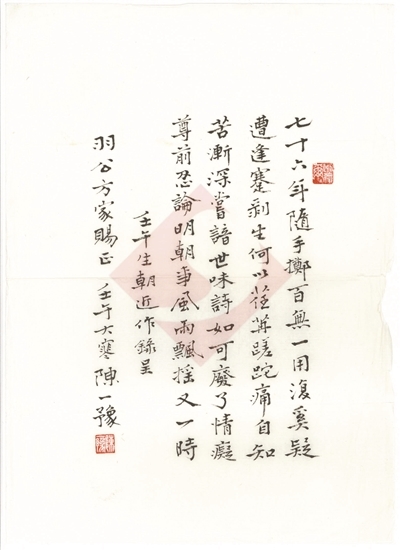 七十六年隨手擲百無一用復奚疑
遭逢蹇剥生何以荏苒蹉跎痛自知
苦漸深嘗諳世味詩如可廢了情癡
尊前忍論明朝事風雨飄搖又一時
壬午生朝近作錄呈
羽公方家賜正 壬午大寒陳一豫